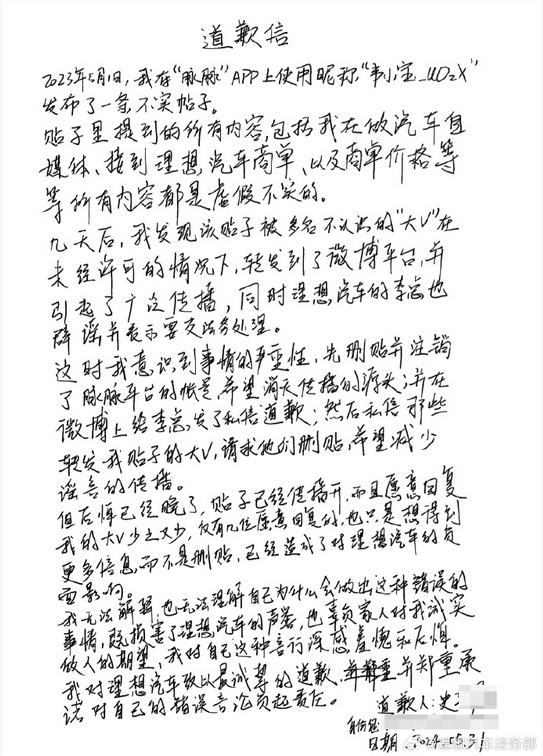 道歉信
2023年5月1日,我在“脉脉”APP上使用昵称“韦小宝_UOzX”
发布了一条不实帖子。
贴子里提到的所有内容,包括我在做汽车自
媒体、接到理想汽车商单、以及商单价格等
等所有内容都是虚假不实的。
几天后,我发现该贴子被多名不认识的“大V”在
未经许可的情况下,转发到了微博平台,并
引起了广泛传播,同时理想汽车的李总也
辟谣并表示要交法务处理。
这时我意识到事情的严重性,先删贴并注销
了脉脉平台的帐号,希望消灭传播的源头;并在
微博上给李总发了私信道歉;然后私信那些
转发我贴子的大V,请求他们删贴,希望减少
谣言的传播。
但后悔已经晚了,贴子已经传播开,而且愿意回复
我的大V少之又少,仅有几位愿意回复的,也只是想得到
更多信息,而不是删贴,已经造成了对理想汽车的负
面影响。
我无法解释,也无法理解自己为什么会做出这种错误的
事情,既损害了理想汽车的声誉,也辜负家人对我诚实
做人的期望,我对自己这种言行深感羞愧和后悔。
我对理想汽车致以最诚挚的道歉,并郑重承
诺对自己的错误言论负起责任。
道歉人:史
身份证
日期:2024.05.31